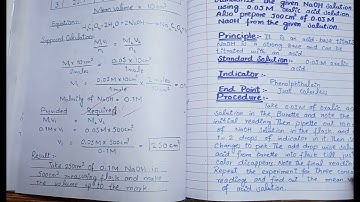 Mean volume = 10cm³
Equation:
Supposed Calculation:
M₁V₁ = M₂V₂
n₁ n₂
M₁ × 10cm³ = 0.05M × 10cm³
2moles 1moles
M₁ = 0.05M × 10cm³ × 2 moles
Molarity of NaOH = 0.1M
Provided Required
M₁V₁ = M₂V₂
0.1M × V₁ = 0.03M × 500cm³
V₁ = 0.03M × 500cm³
0.1M
150cm³
Result:
Take 150cm³ of 0.1M NaOH in
500cm³ measuring flask and make
the volume up to the mark.
the given NaOH solution
using 0.05M Oxalic acid solution
Also prepare 500cm³ of 0.03M
NaOH from the given solution.
Principle:- It is an acid-base titration
NaOH is a strong base and can be
titrated with an acid
Standard Solution:-
0.05M oxalic acid
Indicator:-
Phenolphthalein
End Point:- Just colorless
Procedure:-
Take 0.05M of oxalic acid
solution in the Burette and note the
initial reading. Then pipette out
of NaOH solution in the flask and
1-2 drops of indicator in it. Then
changes to pink. The add drop wise
acid from burette into flask till just
color disappears. Note the final reading
Repeat the experiment for three
readings and find out the mean
of acid solution.